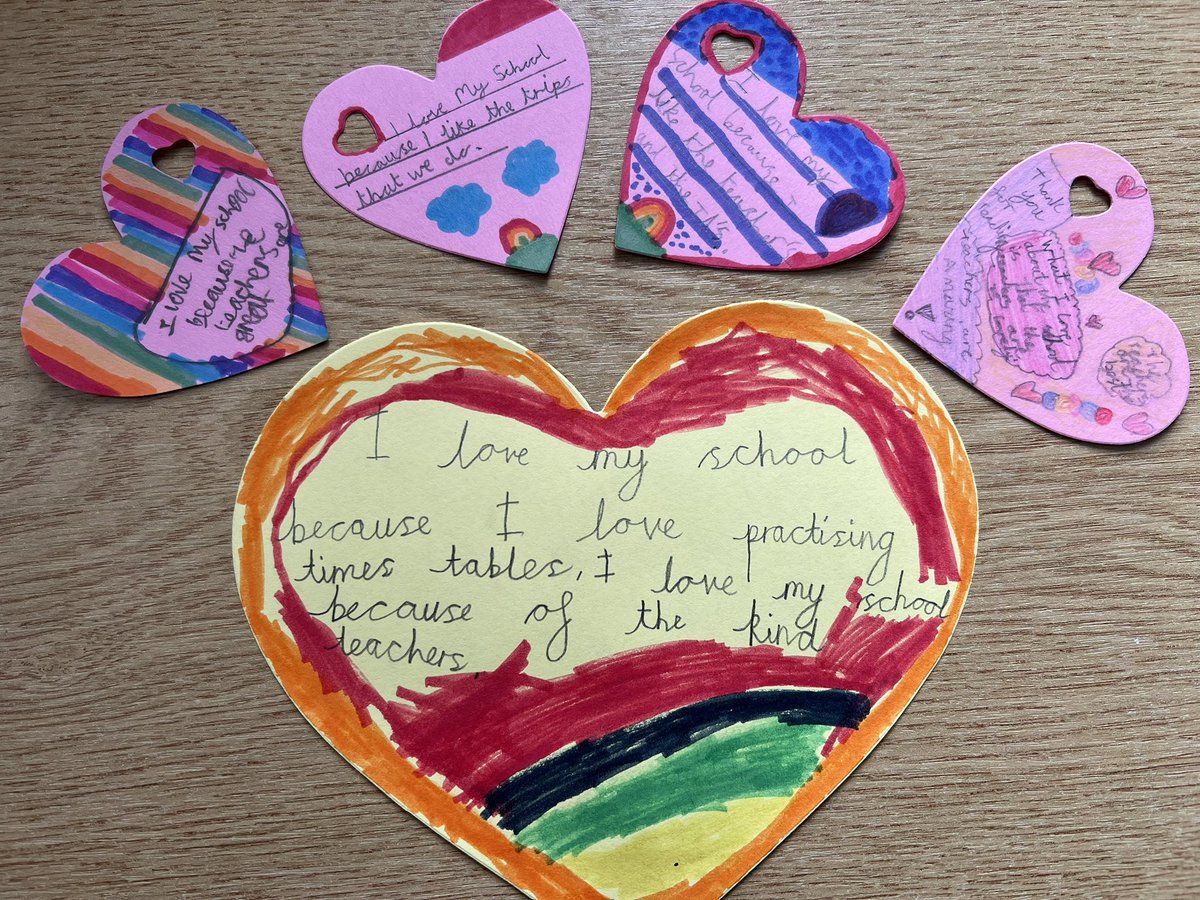 I love My School
because we
teachers are
great
I love My School
because I like the trips
that we do.
I love my
School because I
like the teacher's
and the TA's
Thank
you
for reading
teachers are
amazing
What I love
about is that
I love my school
because I love practising
times tables, I love my school
because of the kind
teachers.